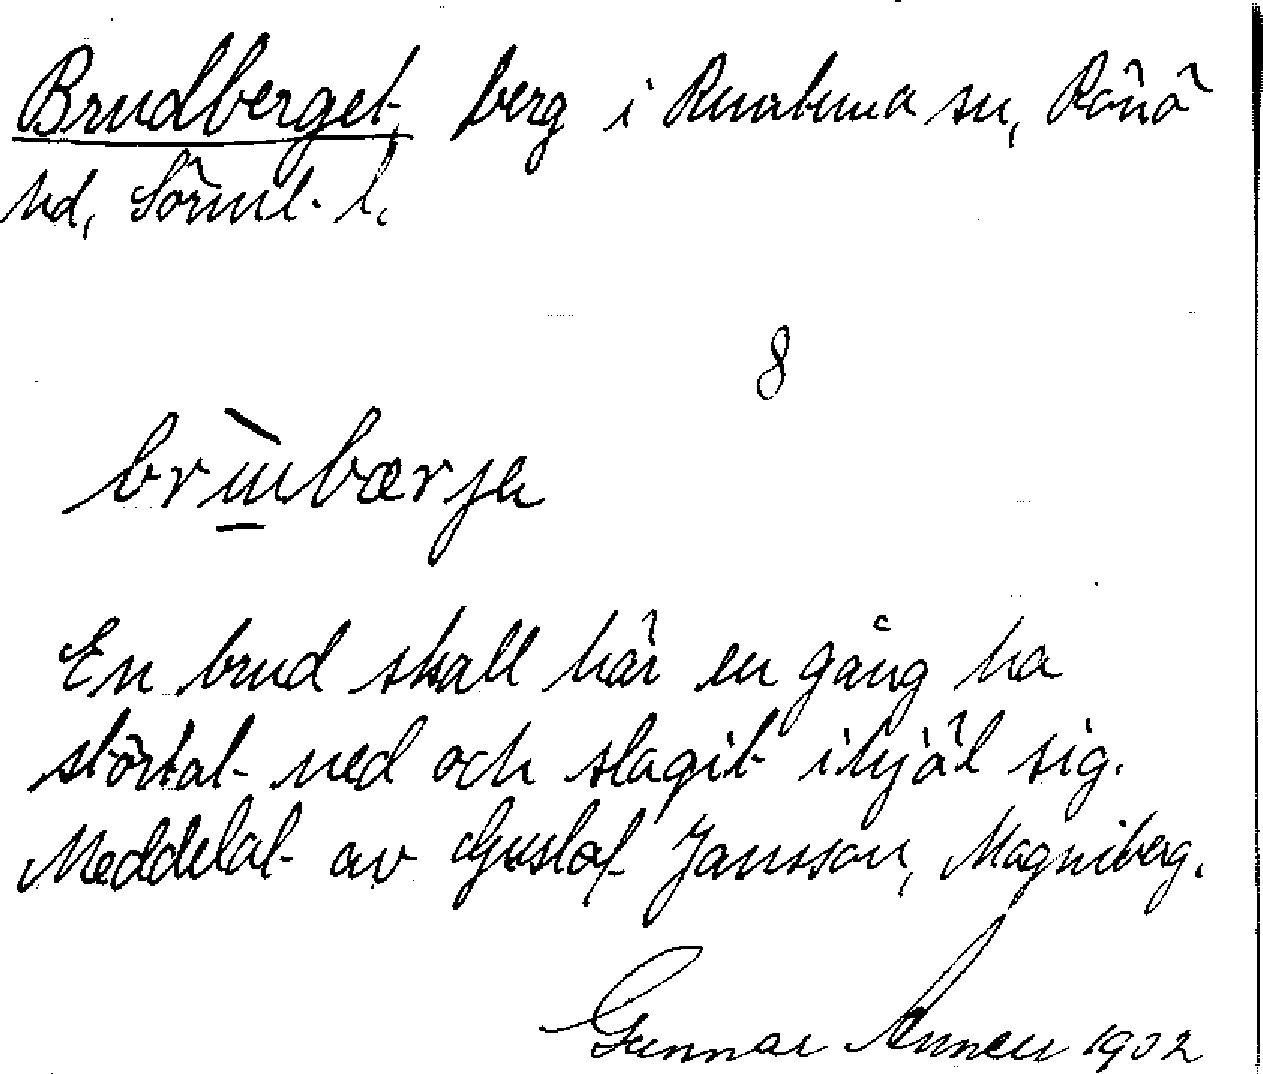 Brudberget, berg i Runtuna sn, Rönö
hd, Sörml. l.
8
En brud skall här en gång ha
störtat ned och slagit ihjäl sig.
Meddelat av Gustaf Jansson, Magniberg.
Gunnar 1902